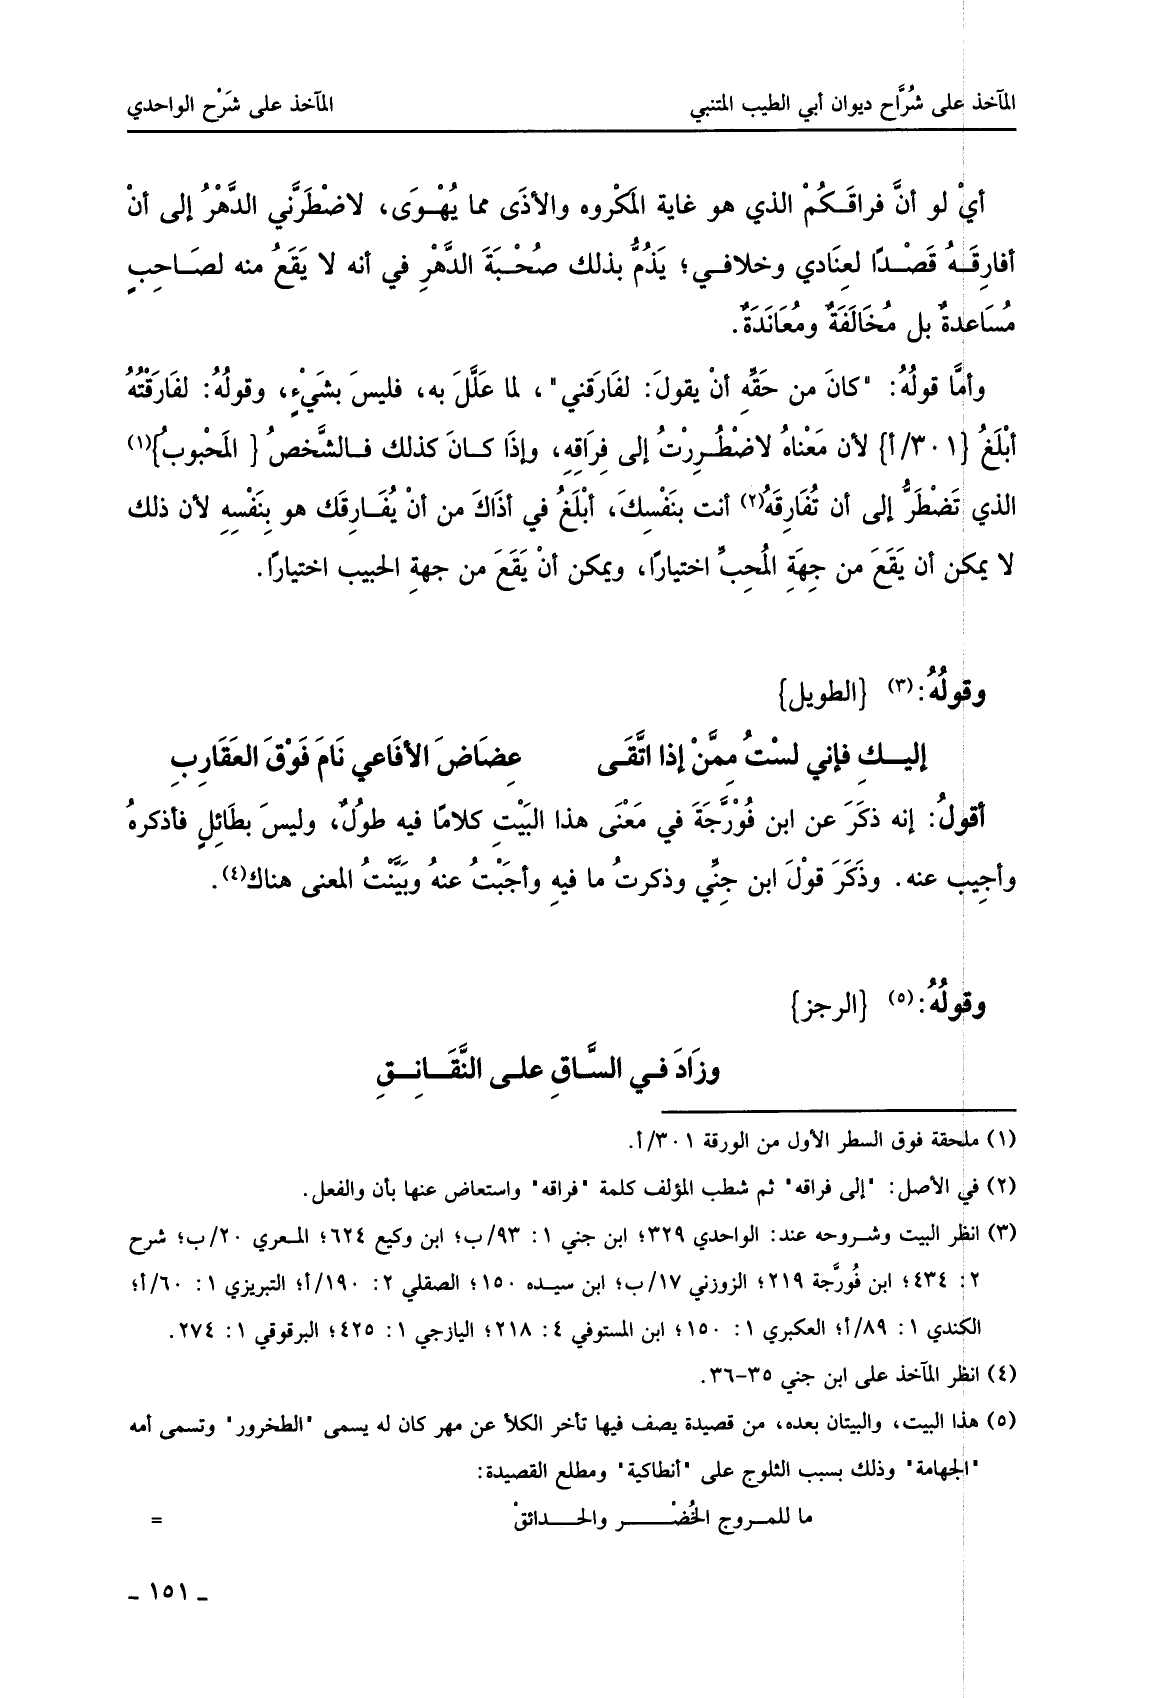 المآخذ على شُرَّاح ديوان أبي الطيب المتنبي المآخذ على شَرْح الواحدي
أيْ لو أنَّ فراقَكُمْ الذي هو غاية المَكْروه والأذَى مما يُهْوَى، لاضْطَرَّني الدَّهْرُ إلى أنْ
أفارِقَهُ قَصْدًا لعِنَادي وخلافي؛ يَذُمُّ بذلك صُحْبَةَ الدَّهْرِ في أنه لا يَقَعُ منه لصَاحِبٍ
مُسَاعدةٌ بل مُخَالَفَةٌ ومُعَانَدَةٌ.
وأمَّا قولُهُ: "كانَ من حَقِّه أنْ يقولَ: لفَارَقني"، لما عَلَّلَ به، فليسَ بشَيْءٍ، وقولُهُ: لفَارَقْتُهُ
أبْلَغُ {٣٠١/أ} لأن مَعْناهُ لاضْطُرِرْتُ إلى فِرَاقِهِ، وإذَا كانَ كذلك فالشَّخصُ { المَحْبوبُ}(١)
الذي تَضْطَرُّ إلى أن تُفَارِقَهُ(٢) أنت بنَفْسِكَ، أبْلَغُ في أذَاكَ من أنْ يُفَارِقَك هو بِنَفْسِهِ لأن ذلك
لا يمكن أن يَقَعَ من جِهَةِ المُحِبِّ اختيارًا، ويمكن أنْ يَقَعَ من جهةِ الحبيب اختيارًا.
وقولُهُ:(٣) {الطويل}
إليكِ فإني لستُ ممَّنْ إذا اتَّقَى عِضَاضَ الأفَاعي نَامَ فَوْقَ العَقَارِبِ
أقولُ: إنه ذكَرَ عن ابن فُوْرَّجَةَ في مَعْنَى هذا البَيْتِ كلامًا فيه طولٌ، وليسَ بطَائِلٍ فأذكرهُ
وأجِيب عنه. وذَكَرَ قولَ ابن جِنِّي وذكرتُ ما فيهِ وأجَبْتُ عنهُ وبَيَّنْتُ المعنى هناك(٤).
وقولُهُ:(٥) {الرجز}
وزَادَ في السَّاقِ على النَّقَانِقِ
(١) ملحقة فوق السطر الأول من الورقة ٣٠١/أ.
(٢) في الأصل: "إلى فراقه" ثم شطب المؤلف كلمة "فراقه" واستعاض عنها بأن والفعل.
(٣) انظر البيت وشروحه عند: الواحدي ٣٢٩؛ ابن جني ١: ٩٣/ب؛ ابن وكيع ٦٢٤؛ المعري ٢٠/ب؛ شرح
٢: ٤٣٤؛ ابن فُورَّجة ٢١٩؛ الزوزني ١٧/ب؛ ابن سيده ١٥٠؛ الصقلي ٢: ١٩٠/أ؛ التبريزي ١: ٦٠/أ؛
الكندي ١: ٨٩/أ؛ العكبري ١: ١٥٠؛ ابن المستوفي ٤: ٢١٨؛ اليازجي ١: ٤٢٥؛ البرقوقي ١: ٢٧٤.
(٤) انظر المآخذ على ابن جني ٣٥-٣٦.
(٥) هذا البيت، والبيتان بعده، من قصيدة يصف فيها تأخر الكلأ عن مهر كان له يسمى "الطخرور" وتسمى أمه
"الجهامة" وذلك بسبب الثلوج على "أنطاكية" ومطلع القصيدة:
ما للمروج الخُضْر والحدائقْ =
ـ ١٥١ ـ